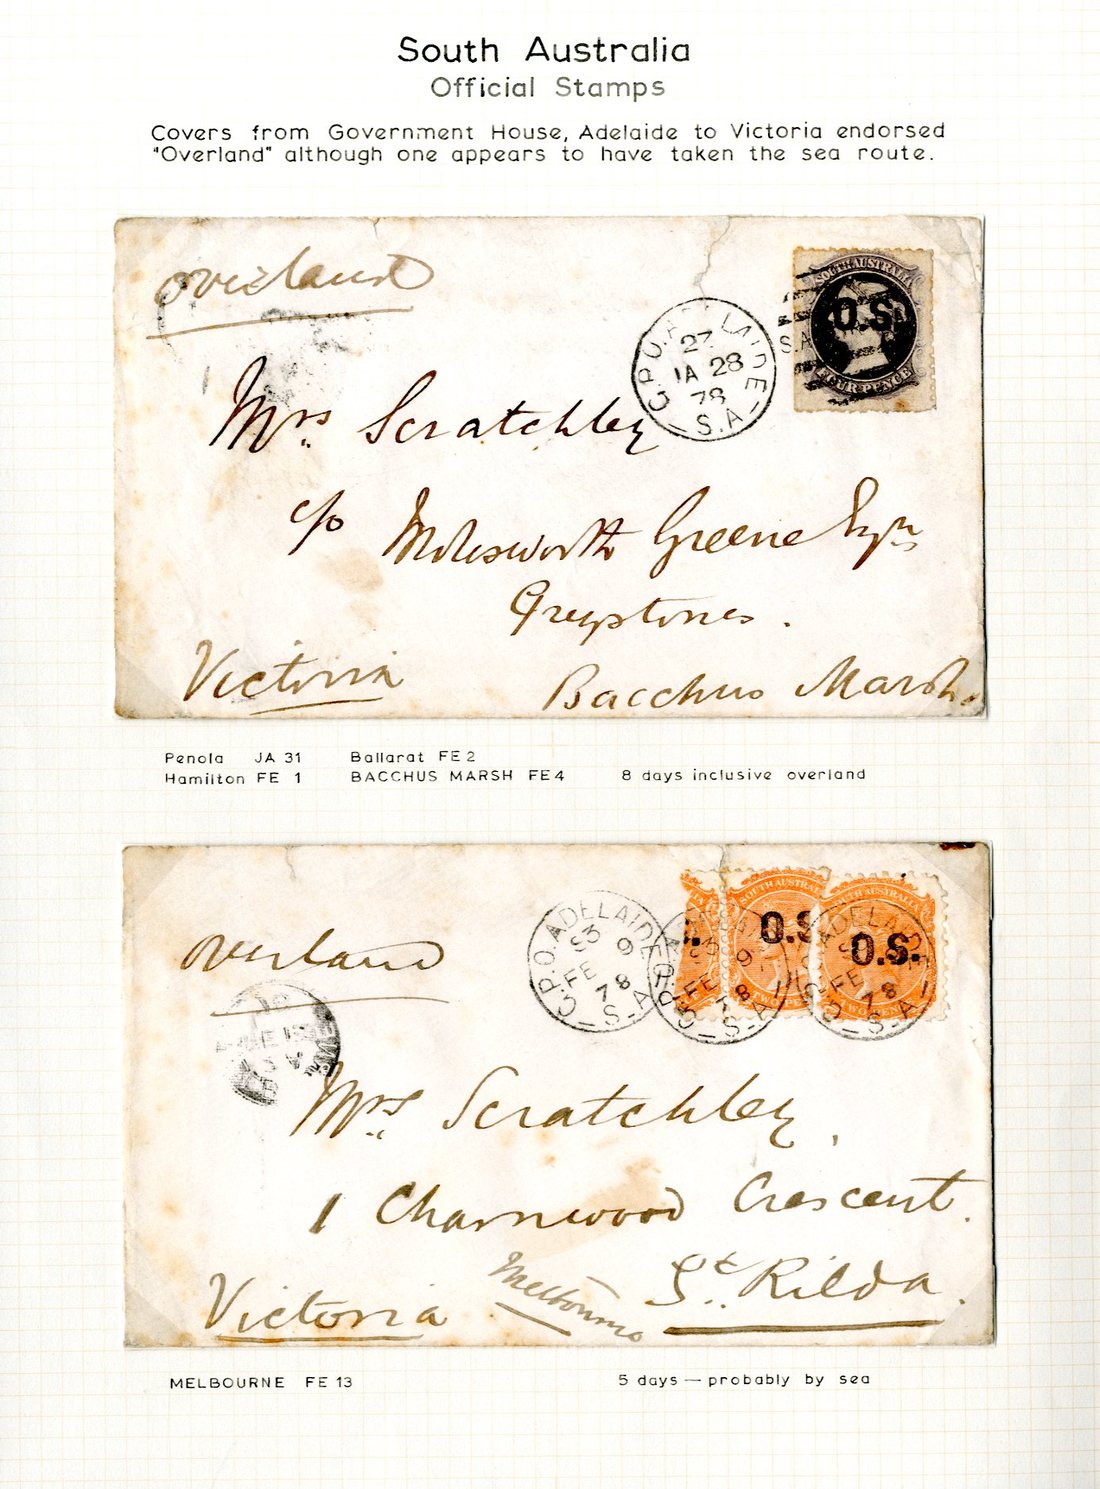 South Australia
Official Stamps
Covers from Government House, Adelaide to Victoria endorsed
"Overland" although one appears to have taken the sea route.
Overland
SOUTH AUSTRALIA
O.S.
S.A.
FOUR PENCE
G.P.O. ADELAIDE
27
JA 28
78
S.A
Mrs. Scratchley
c/o Molesworth Greene Esqre
Greystones.
Victoria
Bacchus Marsh.
Penola JA 31 Ballarat FE 2
Hamilton FE 1 BACCHUS MARSH FE 4 8 days inclusive overland
Overland
G.P.O. ADELAIDE
S3 9
FE
78
S.A
SOUTH AUSTRALIA
O.S.
O.S.
TWO PENCE
Mrs. Scratchley,
1 Charnwood Crescent.
St. Kilda.
Melbourne
Victoria
MELBOURNE FE 13 5 days — probably by sea